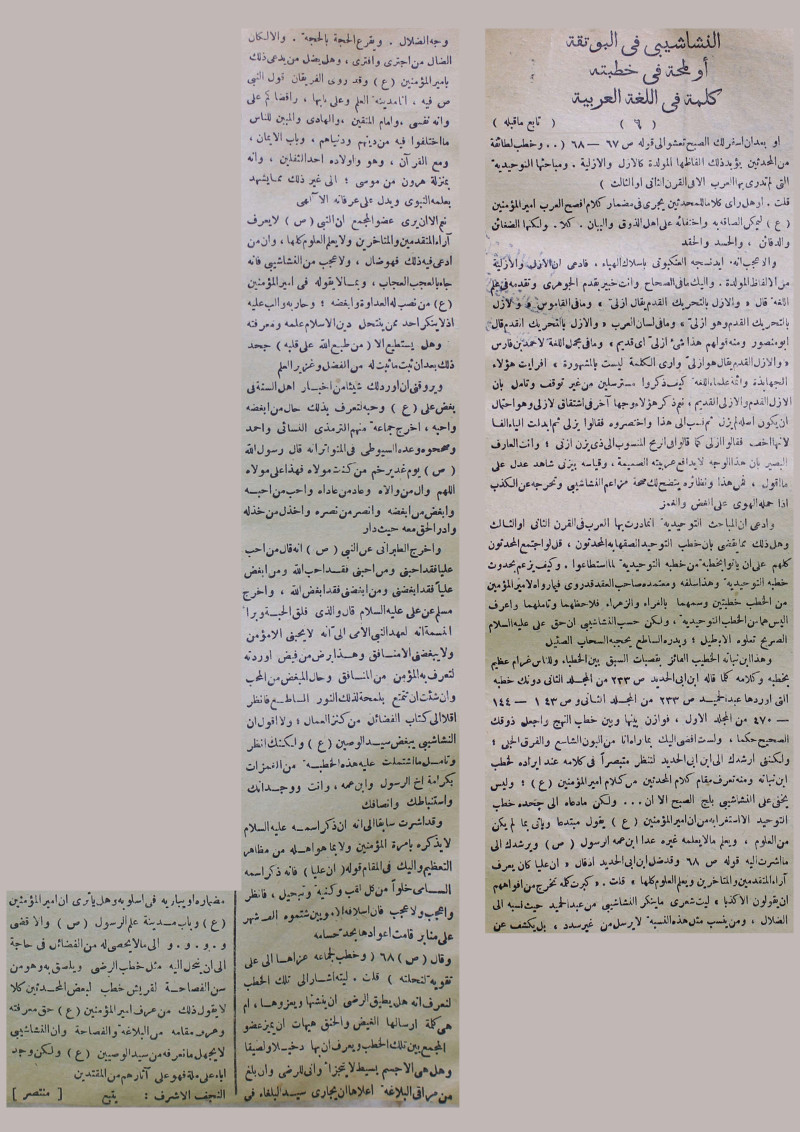 النشاشيبي في البوتقة
أو لمحة في خطبته
كلمة في اللغة العربية
( ٦ ) ( تابع ماقبله )
او بعد ان اسفر لك الصبح تعشو الى قوله ص ٦٧ — ٦٨ ( . . وخطب لطائفة
من المحدثين يؤيد ذلك الفاظها المولدة كالازل والازلية . ومباحثها التوحيدية
التي لم تدري بها العرب الا في القرن الثاني او الثالث )
قلت . او هل رأى كلاما للمحدثين يجري في مضمار كلام افصح العرب امير المؤمنين
( ع ) ليمكن الصاقه به واختفائه على اهل الذوق والبيان . كلا . ولكنها الضغائن
والدفائن ، والحسد والحقد
والاعجب انه ، ايد نسجه العنكبوتي باسلاك الهباء . فادعى ان الازل والازلية
من الالفاظ المولدة . واليك مافي الصحاح وانت خبير بقدم الجوهري وتقدمه في علم
اللغة قال « والازل بالتحريك القدم يقال ازلي » ومافي القاموس « والازل
بالتحريك القدم وهو ازلي » ومافي لسان العرب « والازل بالتحريك القدم قال
ابو منصور ومنه قولهم هذا شئ ازلي اي قديم » ومافي مجمل اللغة لاحمد بن فارس
« والازل القدم يقال هو ازلي وارى الكلمة ليست بالمشهورة » افرايت هؤلاء
الجهابذة وائمة علماء اللغة كيف ذكروا مسترسلين من غير توقف وتامل بان
الازل القدم والازلي القديم ، نعم ذكر هؤلاء وجها آخر في اشتقاق لازلي وهو احتمال
ان يكون اصله لم يزل ثم نسب الى هذا واختصروه فقالوا يزلي ثم ابدلت الياء الفا
لانها اخف فقالوا ازلي كما قالوا في الرمح المنسوب الى ذي يزن ازني ؛ وانت العارف
البصير بان هذا الوجه لا يدافع عربيته الصميمة ، وقياسه يزني شاهد عدل على
ما اقول ، فمن هذا ونظائره يتضح لك صحة مزاعم النشاشيبي وتحرجه عن الكذب
اذا حمله الهوى على الغض والغمز
وادعى ان المباحث التوحيدية انما درت بها العرب في القرن الثاني او الثالث
وهل ذلك مما يقضي بان خطب التوحيد الصقها به المحدثون ، قل لو اجتمع المحدثون
كلهم على ان ياتوا بخطبة من خطبه التوحيدية لما استطاعوا . وكيف يزعم بحدوث
خطبه التوحيدية وهذا سلفه ومعتمده صاحب العقد قد روى فيما رواه لامير المؤمنين
من الخطب خطبتين وسمهما بالغراء والزهراء فلاحظهما وتاملهما واعرف
اليس هما من الخطب التوحيدية ، ولكن حسب النشاشيبي ان حق علي عليه السلام
الصريح تعلوه الاباطيل ؛ وبدره الساطع يحجبه السحاب الضئيل
وهذا ابن نباته الخطيب الفائز بقصبات السبق بين الخطباء وللناس غرام عظيم
بخطبه وكلامه كما قاله ابن ابي الحديد ص ٢٣٣ من المجلد الثاني دونك خطبه
التي اوردها عبد الحميد ص ٢٣٣ من المجلد الثاني وص ١٤٣ — ١٤٤
— ٤٧٠ من المجلد الاول ، فوازن بينها وبين خطب النهج واجعل ذوقك
الصحيح حكما ، ولست افضي اليك بما رءانا من البون الشاسع والفرق الجلي ؛
ولكنني ارشدك الى ابن ابي الحديد لتنظر متبصراً في كلامه عند ايراده لخطب
ابن نباته ومنه تعرف مقام كلام المحدثين من كلام امير المؤمنين ( ع ) ؛ وليس
يخفى على النشاشيبي بلج الصبح الا ان . . . ولكن مادعاه الى جحده خطب
التوحيد الا استغرابه من ان امير المؤمنين ( ع ) يقول مبتدعا وياتي بما لم يكن
من العلوم ، ويعلم مالا يعلمه غيره عدا ابن عمه الرسول ( ص ) ويرشدك الى
ما اشرت اليه قوله ص ٦٨ وقد ضل ابن ابي الحديد اذ قال « ان عليا كان يعرف
آراء المتقدمين والمتاخرين ويعلم العلوم كلها » قلت . « كبرت كلمة تخرج من افواههم
ان يقولون الا كذبا » ليت شعري ماينكر النشاشيبي من عبد الحميد حيث نسبه الى
الضلال ، ومن ينسب مثل هذه النسبة لا يرسل من غير سدد ، بل يكشف عن
وجه الضلال . ويقرع الحجة بالحجة . والا لكان
الضال من اجترى وافترى ، وهل يضل من يدعي ذلك
بامير المؤمنين ( ع ) وقد روى الفريقان قول النبي
ص فيه ، انا مدينة العلم وعلي بابها ،
وانه نفسه ، وامام المتقين ، والهادي والمبين للناس
ما اختلفوا فيه من دينهم ودنياهم ، وباب الايمان ،
ومع القرآن ، وهو واولاده احد الثقلين ، وانه
بمنزلة هرون من موسى ؛ الى غير ذلك مما يشهد
بعلمه النبوي ويدل على عرفانه الآلهي
نعم الا ان يرى عضو المجمع ان النبي ( ص ) لا يعرف
آراء المتقدمين والمتاخرين ولا يعلم العلوم كلها ، وان من
ادعى فيه ذلك فهو ضال ، ولا عجب من النشاشيبي فانه
جاء بالعجب العجاب ، وبما لا يقوله في امير المؤمنين
( ع ) من نصب له العداوة وابغضه ؛ وحاربه والب عليه
اذ لا ينكر احد ممن ينتحل دين الاسلام علمه ومعرفته
وهل يستطيع الا ( من طبع الله على قلبه ) جحد
ذلك بعد ان ثبت ما ثبت له من الفضل وغزير العلم
ويروقني ان اورد لك شيئا من اخبار اهل السنة في
بغض علي ( ع ) وحبه لتعرف بذلك حال من ابغضه
واحبه ، اخرج جماعة منهم الترمذي النسائي واحمد
وصححوه وعده السيوطي في المتواتر انه قال رسول الله
( ص ) يوم غدير خم من كنت مولاه فهذا علي مولاه
اللهم وال من والاه وعاد من عاداه واحب من احبه
وابغض من ابغضه وانصر من نصره واخذل من خذله
وادر الحق معه حيث دار
واخرج الطبراني عن النبي ( ص ) انه قال من احب
عليا فقد احبني ومن احبني فقد احب الله ومن ابغض
علياً فقد ابغضني ومن ابغضني فقد ابغض الله ، واخرج
مسلم عن علي عليه السلام قال والذي فلق الحبة وبرأ
النسمة انه لعهد النبي الامي الى انه لا يحبني الا مؤمن
ولا يبغضني الا منافق وهذا برض من فيض اوردته
لتعرف به المؤمن من المنافق وحال المبغض من المحب
وان شئت ان تتمتع بلمحة لذلك النور الساطع فانظر
اقلا الى كتاب الفضائل من كنز العمال ؛ ولا اقول ان
النشاشيبي يبغض سيد الوصيين ( ع ) ولكنك انظر
وتامل ما اشتملت عليه هذه الخطبة من الغمزات
بكرامة اخ الرسول وابن عمه ، وانت ووجدانك
واستنباطك وانصافك
وقد اشرت سابقا الى انه ان ذكر اسمه عليه السلام
لا يذكره بامرة المؤمنين ولا بما هو اهله من مظاهر
التعظيم واليك في المقام قوله ( ان عليا ) فانه ذكر اسمه
السامي خلواً من كل لقب وكنية وتبجيل ، فانظر
واعجب ولا عجب فان اسلافه الامويين شتموه الف شهر
على منابر قامت اعوادها بحد حسامه
وقال ( ص ) ٦٨ ( وخطب لجماعة عزاها الى علي
تقوية لنحلته ) قلت . ليته اشار الى تلك الخطب
لنعرف انه هل يطيق الرضي ان ينشئها ويعزوها ، ام
هي كلمة ارسالها الغيض والحنق هيهات ان يميز عضو
المجمع بين تلك الخطب ويعرف ان بها دخيلا ولصيقا
وهل هي الا جسم بسيط لا يتجزأ وانى للرضي وان بلغ
من مراقي البلاغة اعلاها ان يجاري سيد البلغاء في
مضماره او يباريه في اسلوبه وهل يا ترى ان امير المؤمنين
( ع ) وباب مدينة علم الرسول ( ص ) والاقضى
و . و . و . و الى مالا يحصى له من الفضائل في حاجة
الى ان ينحل اليه مثل خطب الرضي ويلصق به وهو من
سن الفصاحة لقريش خطب لبعض المحدثين كلا
لا يقول ذلك من عرف امير المؤمنين ( ع ) حق معرفته
وعرف مقامه من البلاغة والفصاحة وان النشاشيبي
لا يجهل ما نعرفه من سيد الوصيين ( ع ) ولكن وجد
اباءه على ملة فهو على آثارهم من المقتدين
النجف الاشرف : يتبع [ منتصر ]